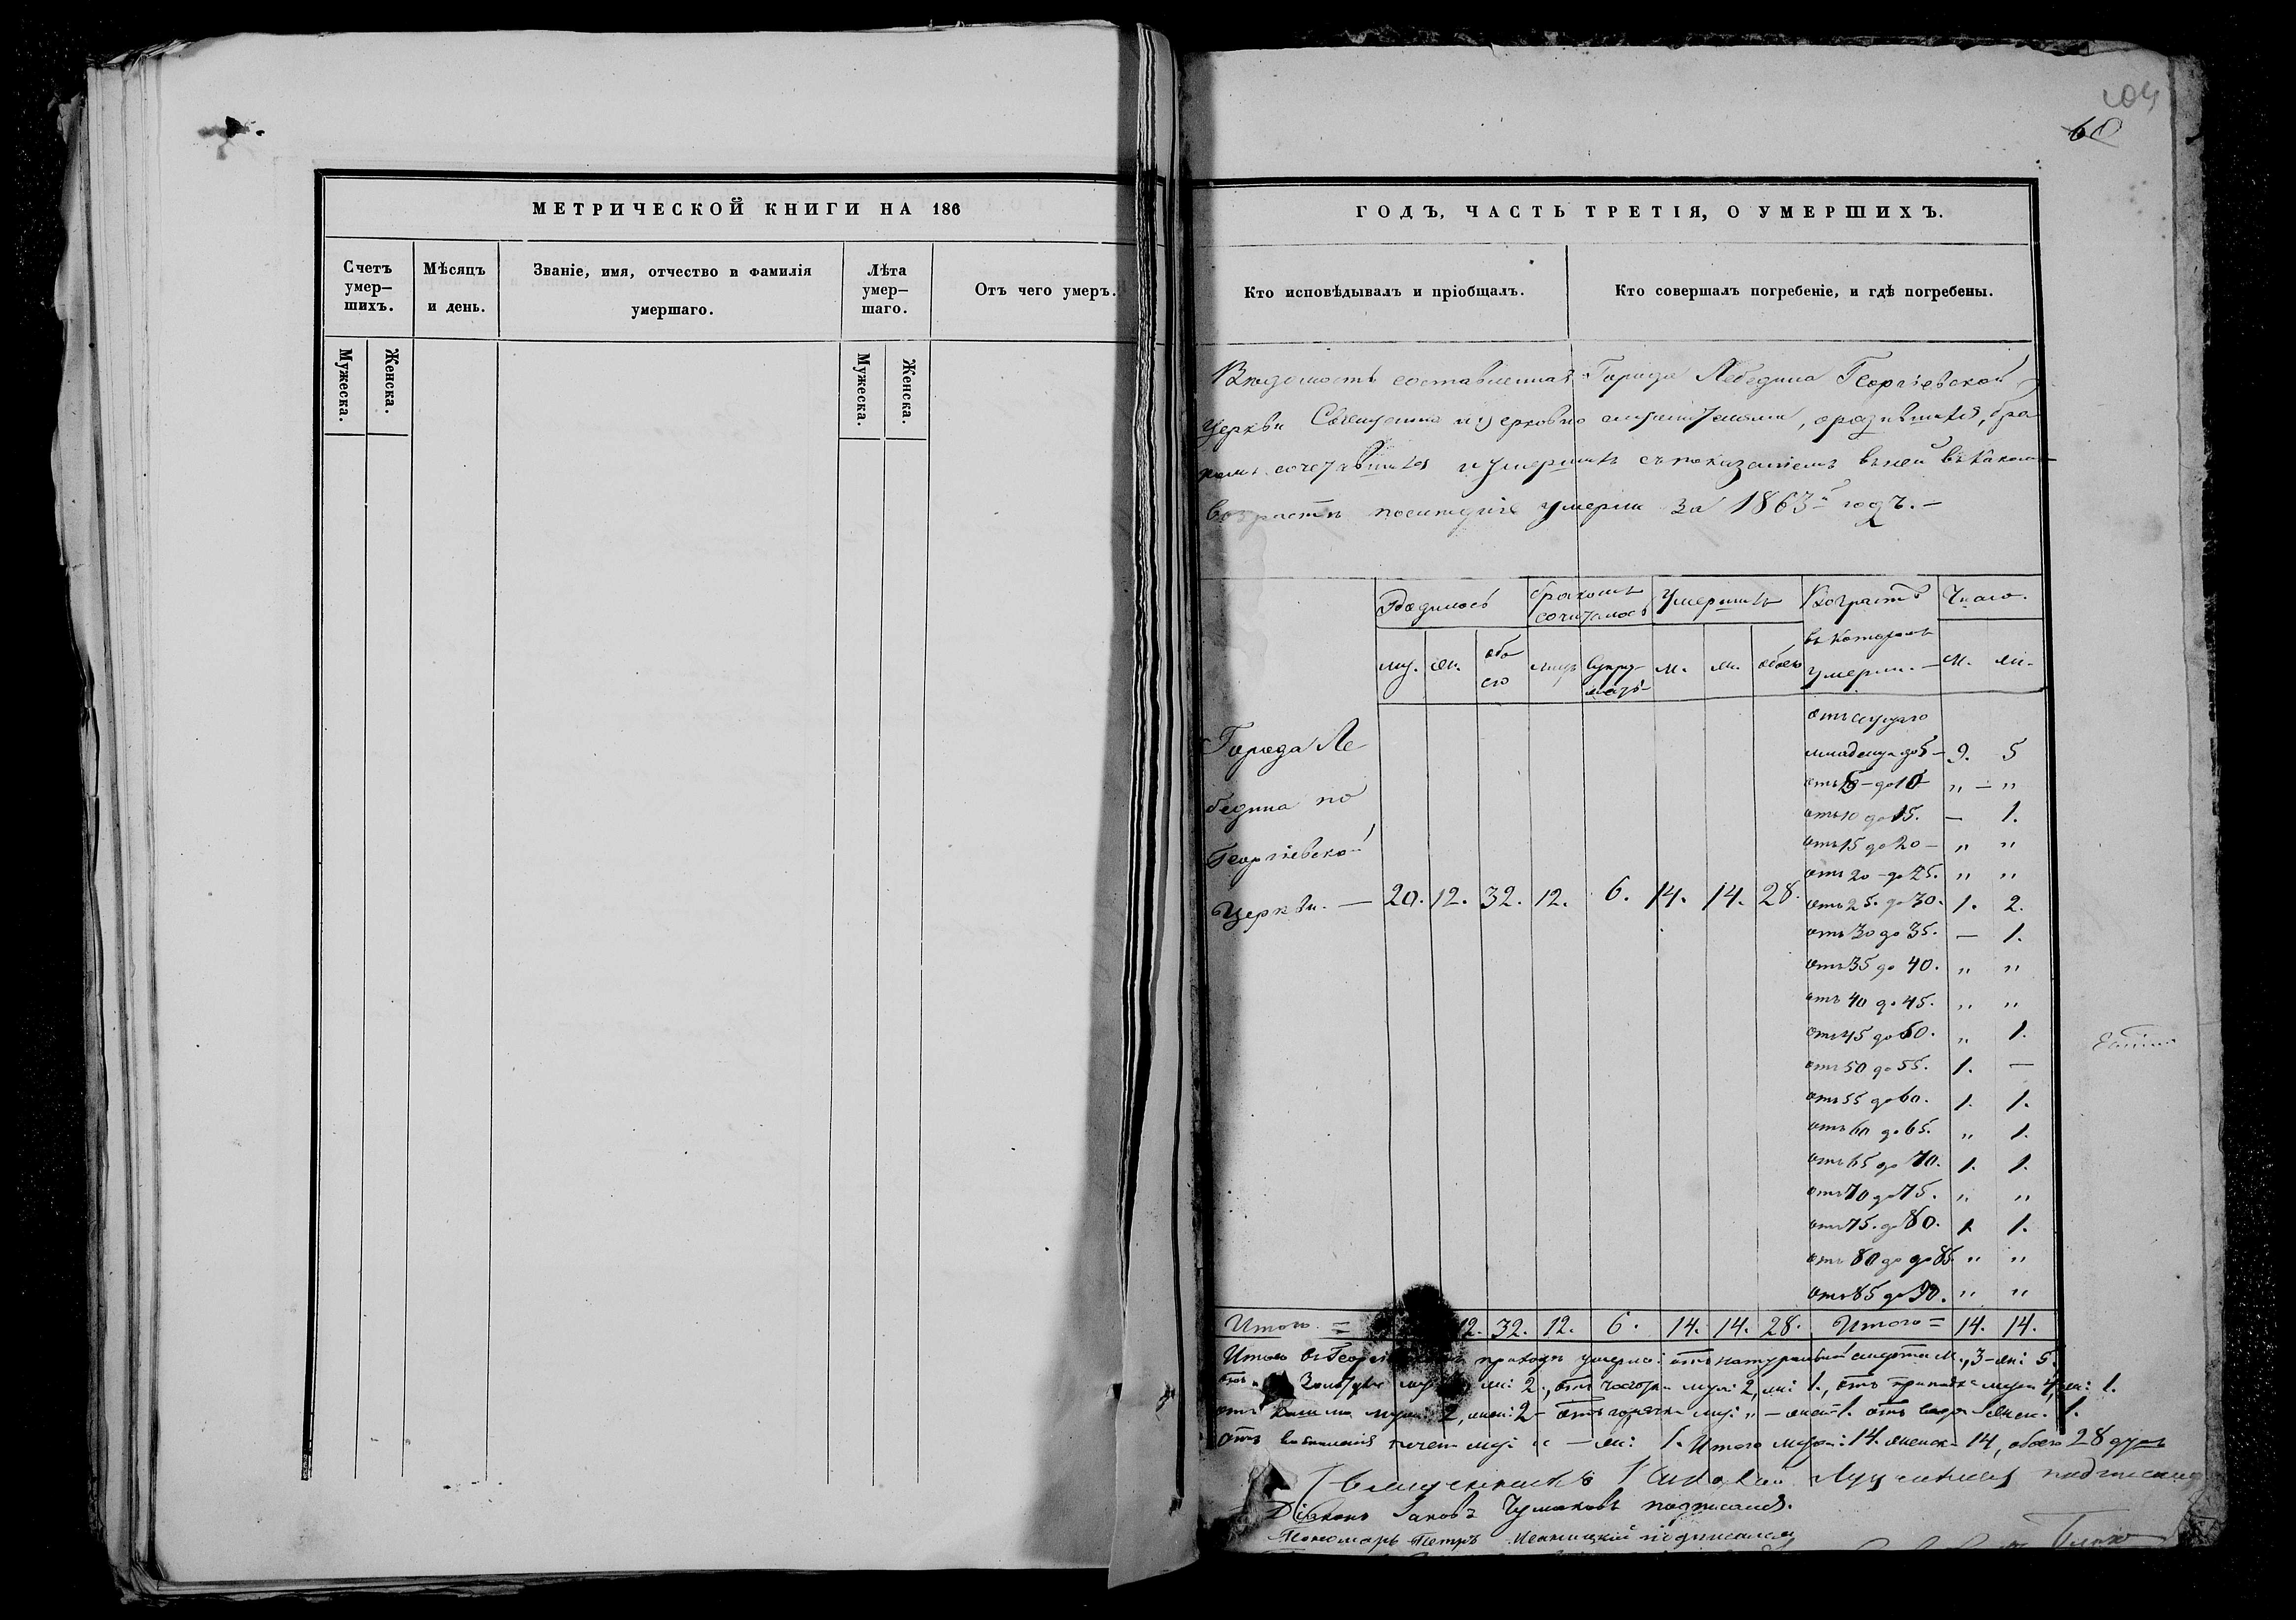 МЕТРИЧЕСКОЙ КНИГИ НА 186
Счетъ умер-шихъ.
Мѣсяцъ и день.
Званіе, имя, отчество и фамилія умершаго.
Лѣта умер-шаго.
Отъ чего умеръ.
Мужеска.
Женска.
Мужеска.
Женска.
104
60
ГОДЪ, ЧАСТЬ ТРЕТІЯ, О УМЕРШИХЪ.
Кто исповѣдывалъ и пріобщалъ.
Кто совершалъ погребеніе, и гдѣ погребены.
Вѣдомость составленная Города Лебедина Георгіевской
Церкви Священно и церковно служителями, о родившихся, бра
комъ сочетавшихся и умершихъ съ показаніемъ въ ней въ какомъ
возрастѣ послѣдніе умерли за 1863й годъ. —
Родилось
бракомъ сочеталось
Умершихъ
Возрастъ въ которомъ умерли. —
Число.
му.
жн.
обо его
лицъ
Супру-
м.
ж.
обоего
м.
жн.
Города Ле
бедина по
Георгіевской
Церкви. — 20. 12. 32. 12. 6. 14. 14. 28.
отъ
младенца до 5 — 9. 5
отъ 5 — до 10 „ — „
отъ 10 до 15. — 1.
отъ 15 до 20 — „ „
отъ 20 — до 25. „ „
отъ 25. до 30. 1. 2.
отъ 30 до 35. — 1.
отъ 35 до 40. „ „
отъ 40 до 45. „ „
отъ 45 до 50. „ 1.
отъ 50 до 55. 1. —
отъ 55 до 60. 1. 1.
отъ 60 до 65. „ 1.
отъ 65 до 70. 1. 1.
отъ 70 до 75. „ „
отъ 75. до 80. 1 1.
отъ 80 до до 85 „ „
отъ 85 до 90. „ „
Итого = 12. 32. 12. 6. 14. 14. 28. Итого = 14. 14.
Итого въ приходѣ умерло: отъ натуральной смерти м. 3 — жн: 5.
жн: 2., отъ муж: 2, жн: 1., отъ 4, жн: 1.
отъ кашлю муж: 2, жен: 2 — отъ горячки муж: „ — жен: 1. отъ 1.
отъ воспаленія муж: „ — жн: 1. Итого муж: 14. женск. 14, обоего 28 душъ
Священникъ подписался
Діаконъ Іаковъ Чумаковъ подписался.
Пономарь Петръ подписался